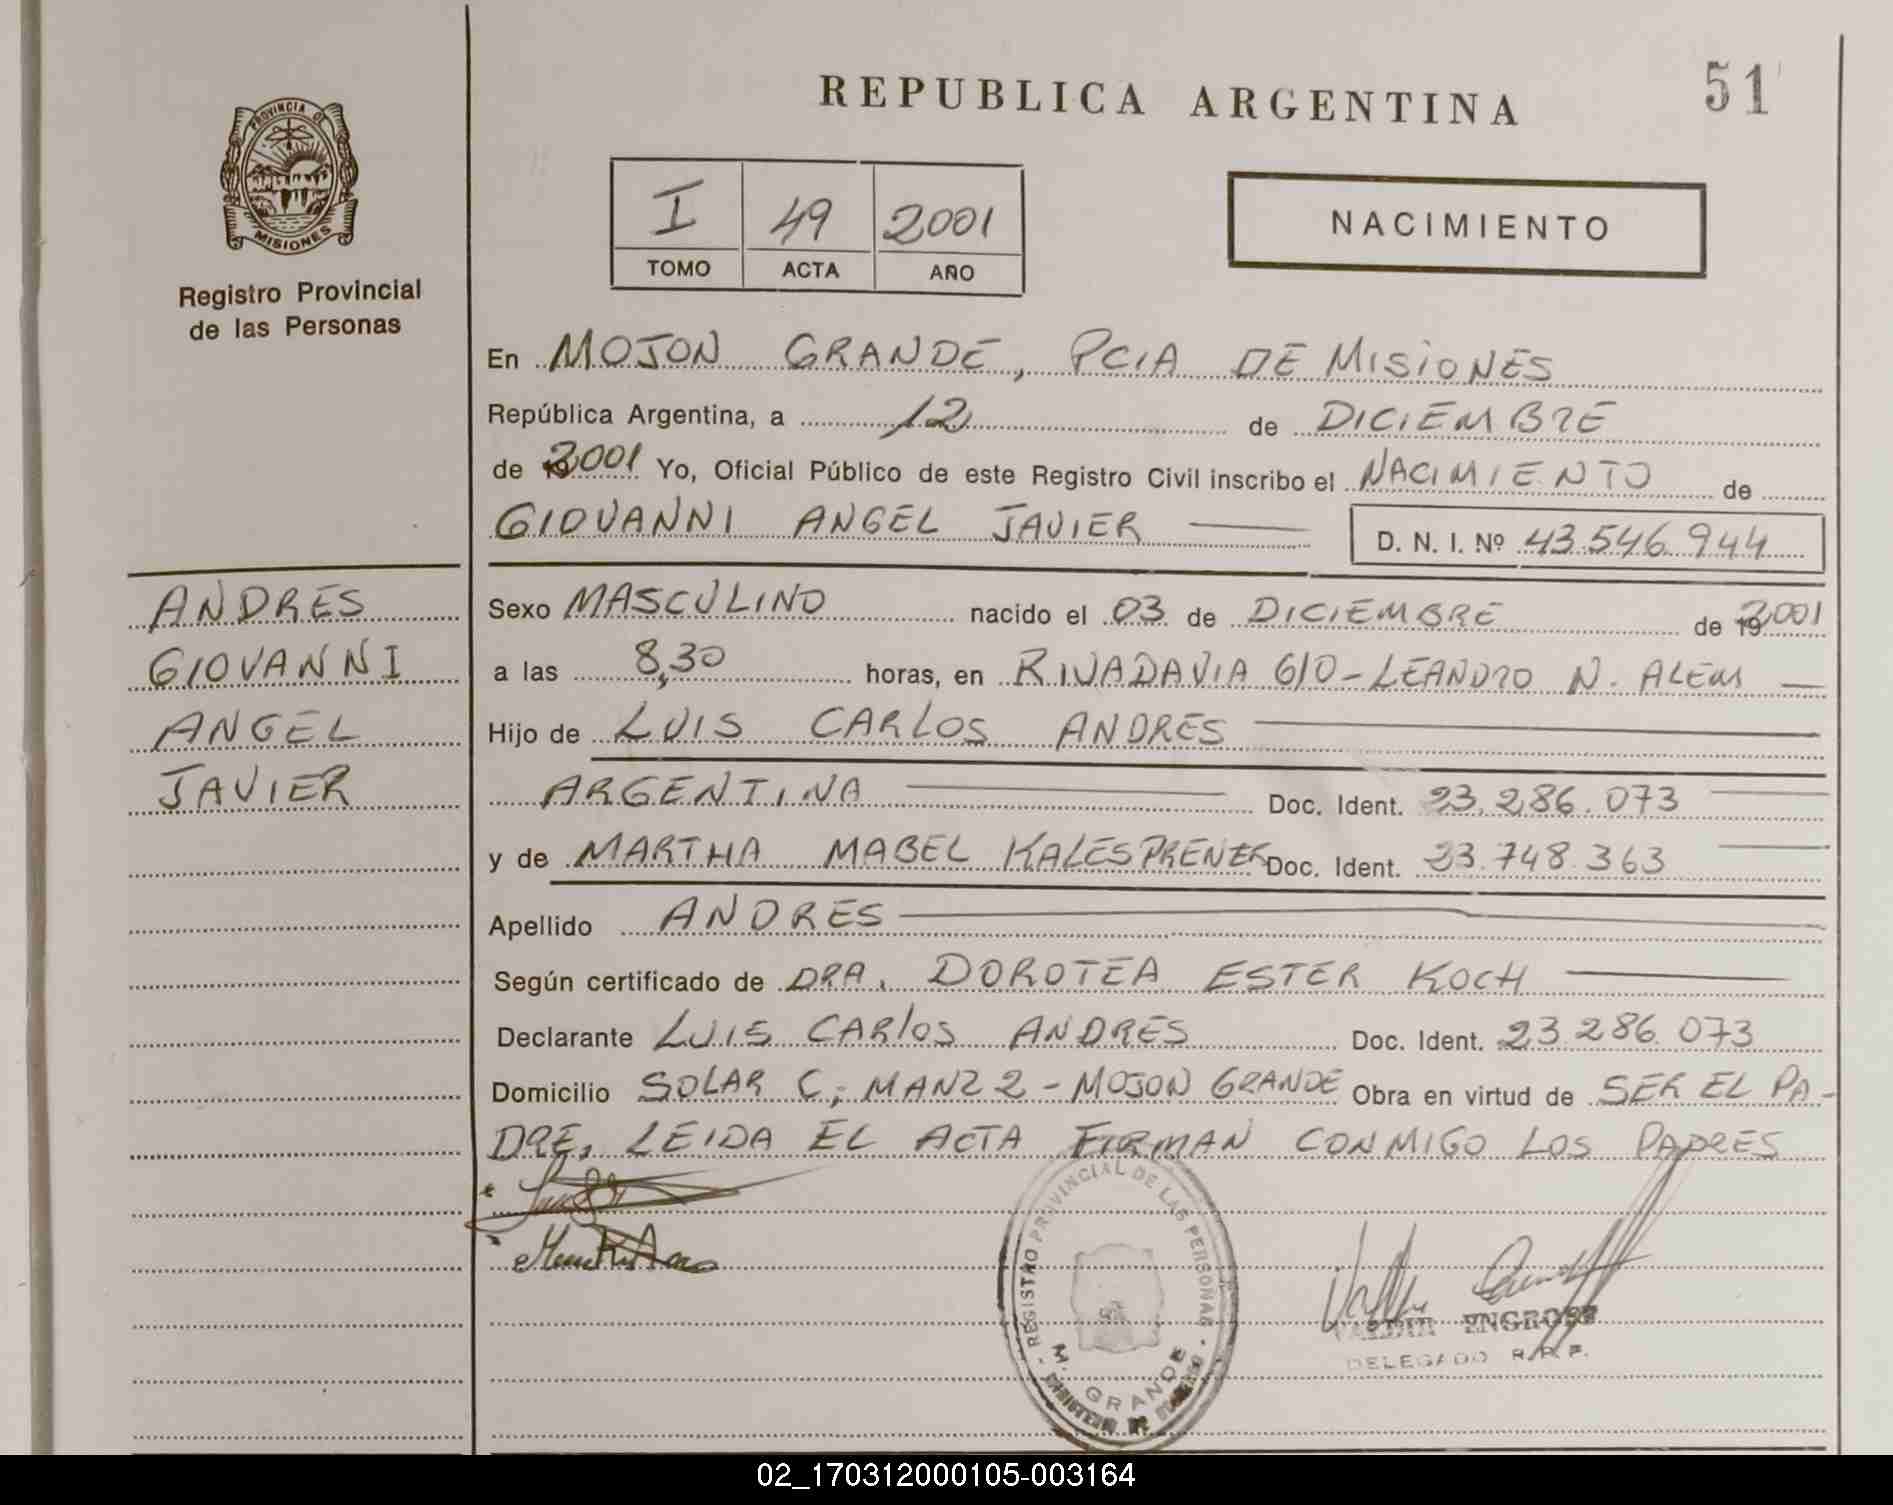 REPUBLICA ARGENTINA
51
PROVINCIA DE
MISIONES
Registro Provincial
de las Personas
I 49 2001
TOMO ACTA AÑO
NACIMIENTO
En MOJON GRANDE, PCIA DE MISIONES
República Argentina, a 12 de DICIEMBRE
de 2001 Yo, Oficial Público de este Registro Civil inscribo el NACIMIENTO de
GIOVANNI ANGEL JAVIER D. N. I. Nº 43.546.944
ANDRES
GIOVANNI
ANGEL
JAVIER
Sexo MASCULINO nacido el 03 de DICIEMBRE de 2001
a las 8,30 horas, en RIVADAVIA 610 - LEANDRO N. ALEM
Hijo de LUIS CARLOS ANDRES
ARGENTINA Doc. Ident. 23.286.073
y de MARTHA MABEL KALESPRENER Doc. Ident. 23.748.363
Apellido ANDRES
Según certificado de DRA. DOROTEA ESTER KOCH
Declarante LUIS CARLOS ANDRES Doc. Ident. 23.286.073
Domicilio SOLAR C; MANZ 2 - MOJON GRANDE Obra en virtud de SER EL PA-
DRE, LEIDA EL ACTA FIRMAN CONMIGO LOS PADRES
REGISTRO PROVINCIAL DE LAS PERSONAS
M. GRANDE
ENGROSE
DELEGADO R.P.P.
02_170312000105-003164